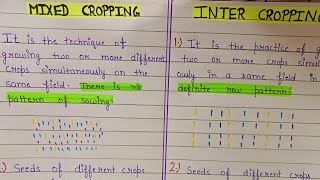 MIXED CROPPING
It is the technique of
growing two or more different
crops simultaneously on the
same field. There is no
pattern of sowing.
2.) Seeds of different crops
INTER CROPPING
1.) It is the practice of
two or more crops simul
ously in a same field in
definite row pattern.
2.) Seeds of different